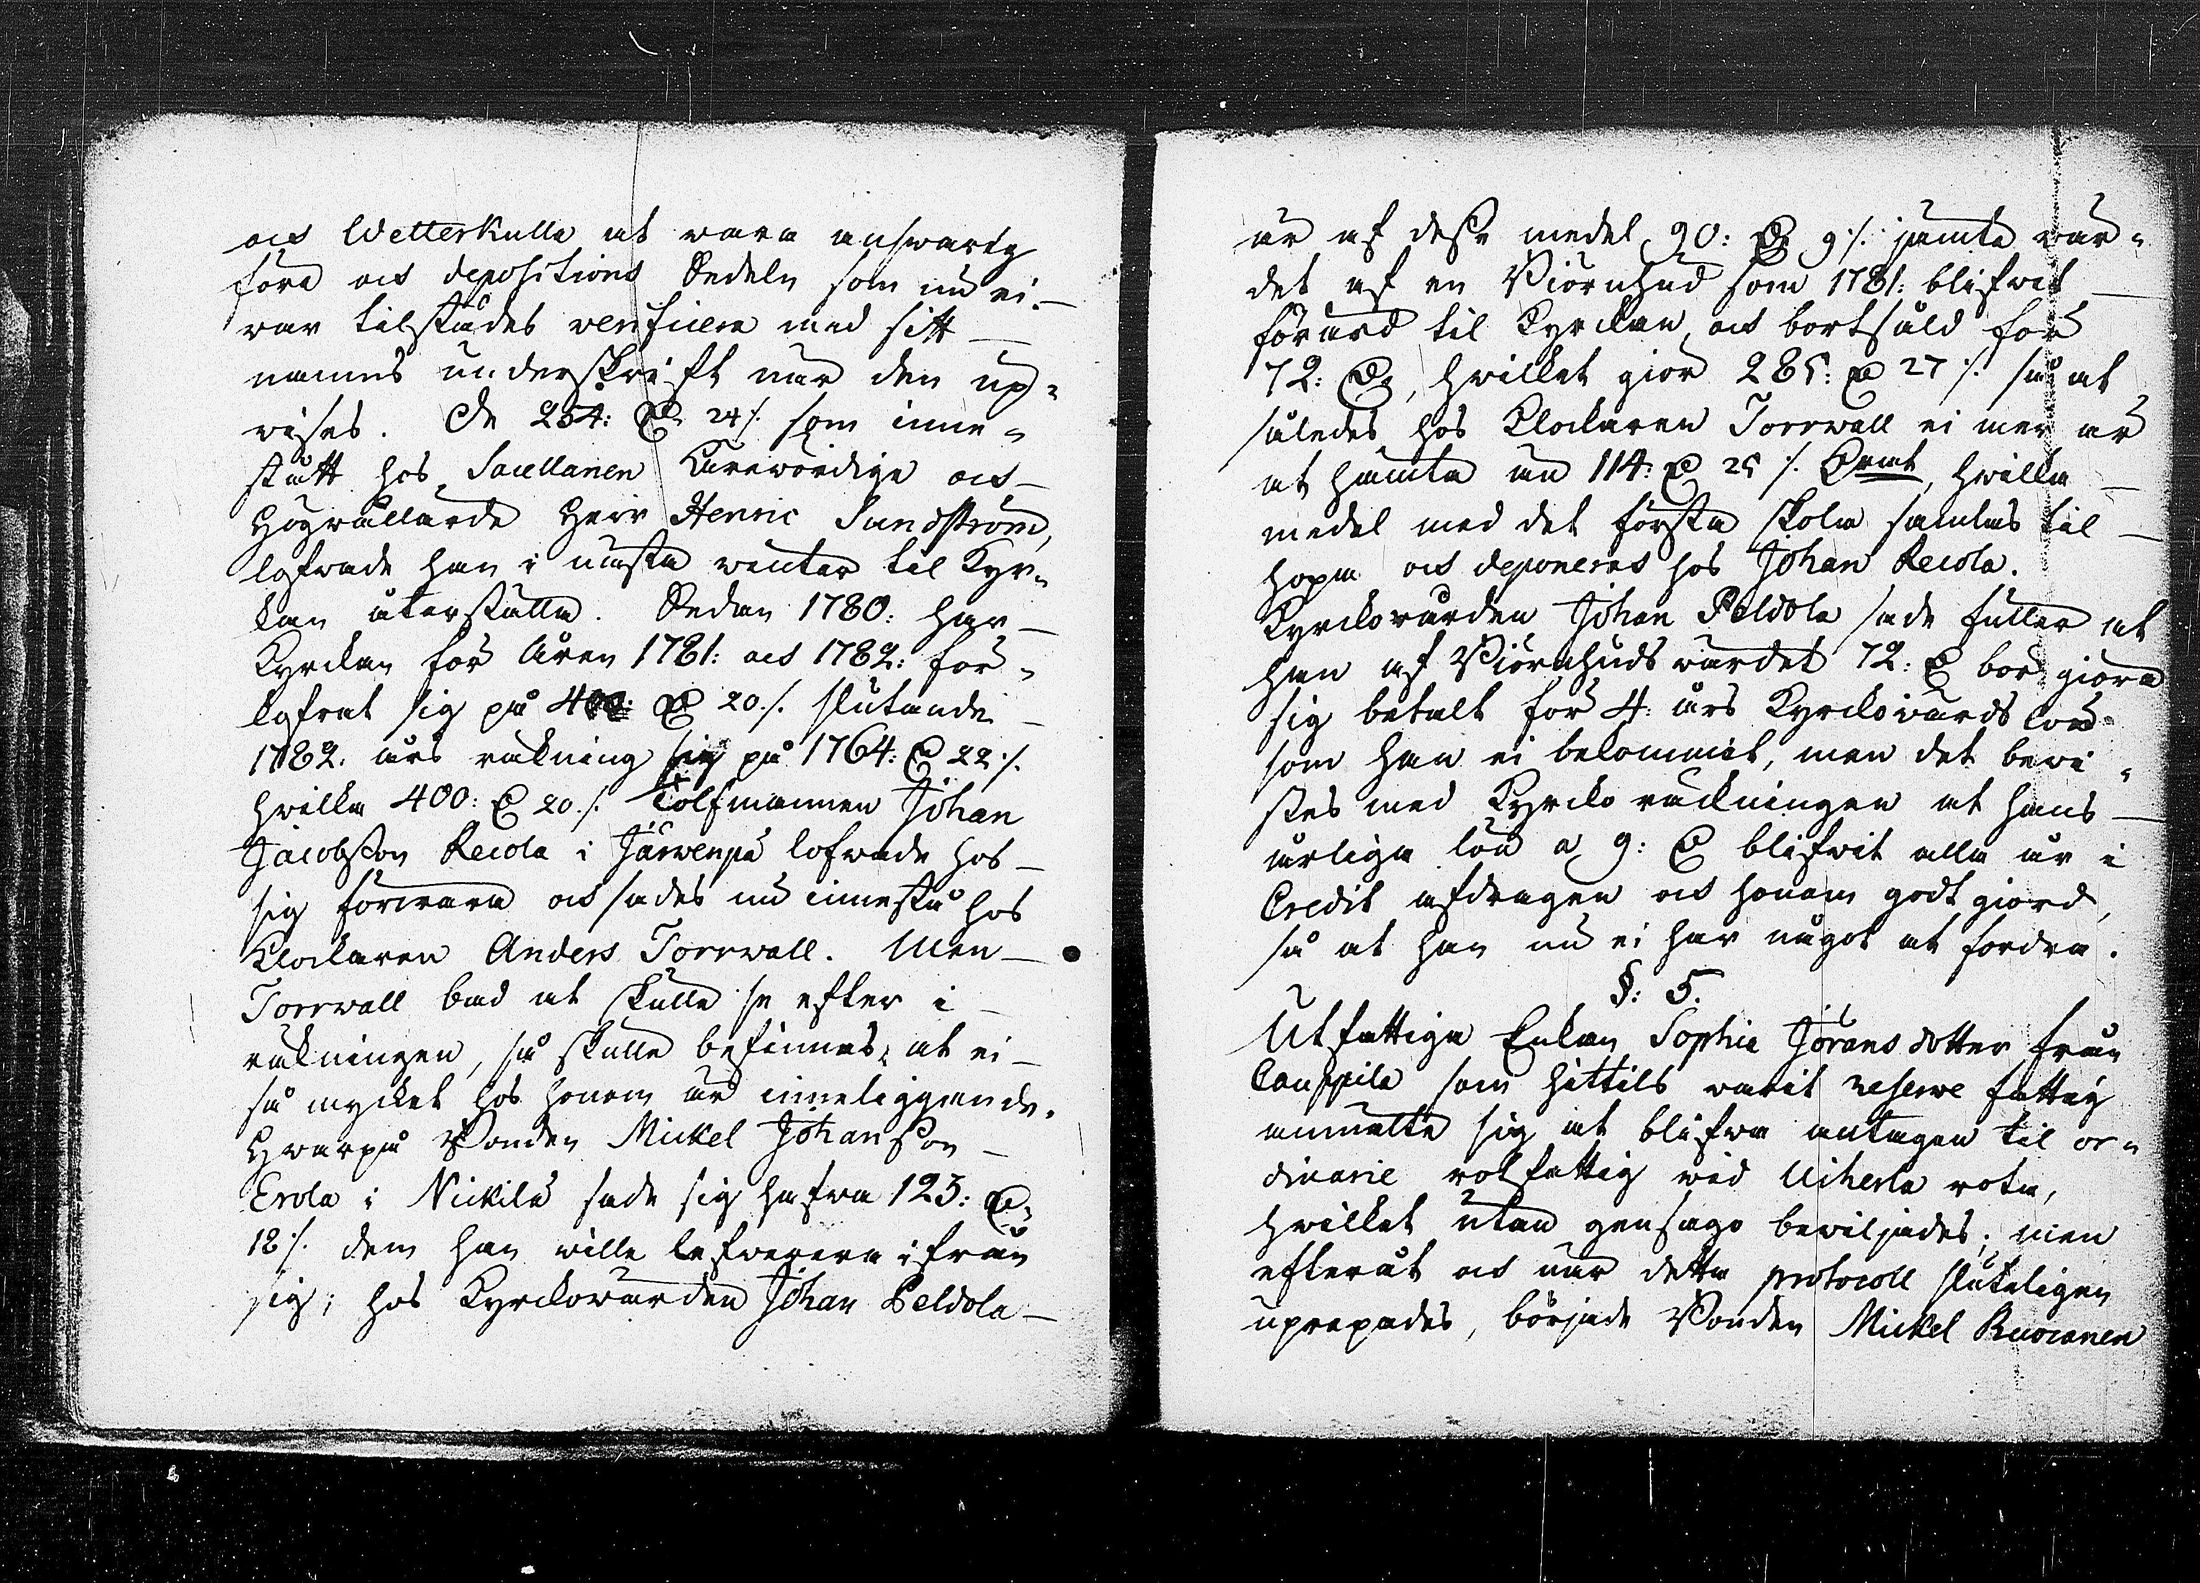 och Wetterkulla at vara answarig
före och depositions Sedeln som nu ei
var tilstädes verificera med sitt
namns underskrift när den up-
vises. De 254: D 24/. som inne-
stått hos Sacellanen Lärewördige och
Högvällärde Herr Henric Sundström,
lofvade han i nästa vinter til Kyr-
kan återställa. Sedan 1780: har
Kyrckan för Åren 1781: och 1782: för-
kofrat sig på 400: D 20./. slutande
1782. års räkning sig på 1764: D 22./.
hvilka 400: D 20./. Tolfmannen Johan
Jacobsson Recola i Järwenpä lofvade hos
sig förvara och sades nu innestå hos
Klockaren Anders Torrwall. Men
Torrwall bad at skulle se efter i
räkningen, så skulle befinnas, at ei
så mycket hos honom är inneliggande.
Hvarpå Bonden Mickel Johansson
Erola i Nickilä sade sig hafva 123: D
12/. dem han ville lefverera ifrån
sig; hos Kyrckovärden Johan Peldola
är af desse medel 90: D 9/. jämte vär-
det af en Biörnhud som 1781: blifvit
förärd til Kyrckan och bortsåld för
72: D, hvilket giör 285: D 27/. så at
således hos Klockaren Torrwall ei mer är
at hämta än 114: D 25/. Kmt, hvilka
medel med det första skola samlas til-
hopa och deponeras hos Johan Recola.
Kyrckovärden Johan Peldola sade fuller at
han af Biörnhuds värdet 72: D bör giöra
sig betalt för 4: års Kyrckovärds lön
som han ei bekommit, men det bevi-
stes med Kyrcko räckningen at hans
årliga lön a 9: D blifvit alla år i
Credit afdragen och honom godt giord,
så at han nu ei har något at fordra.
§: 5.
Utfattiga Enkan Sophia Jörans dotter från
Cauppila som hittils varit reserve fattig
anmälte sig at blifva antagen til or-
dinarie rotfattig vid Uiherla rota,
hvilket utan gensago beviljades; men
efteråt och när detta protocoll sluteligen
uprepades, började Bonden Mickel Ruocanen